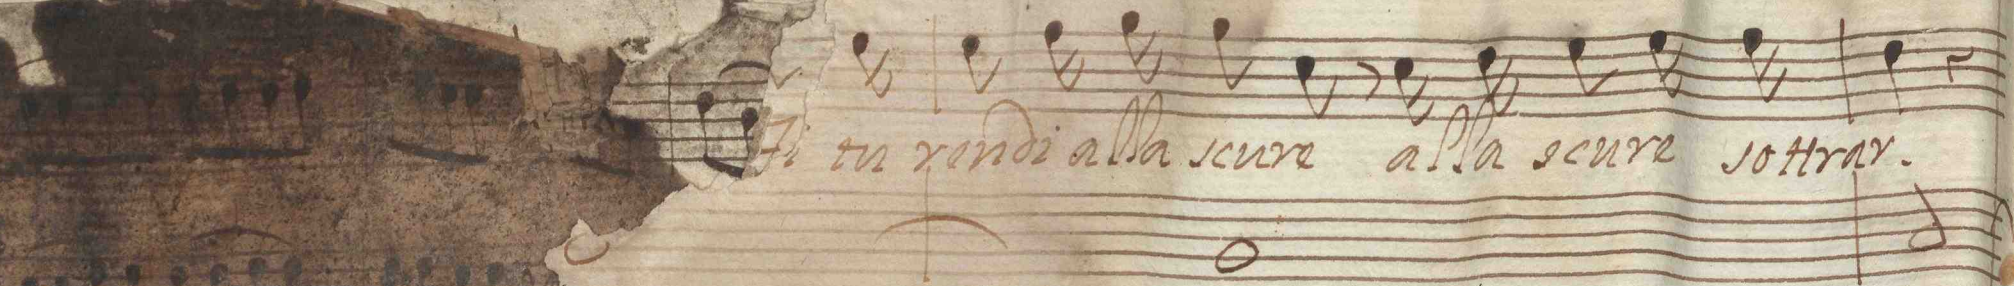 ti tu rendi alla scure alla scure sottrar.